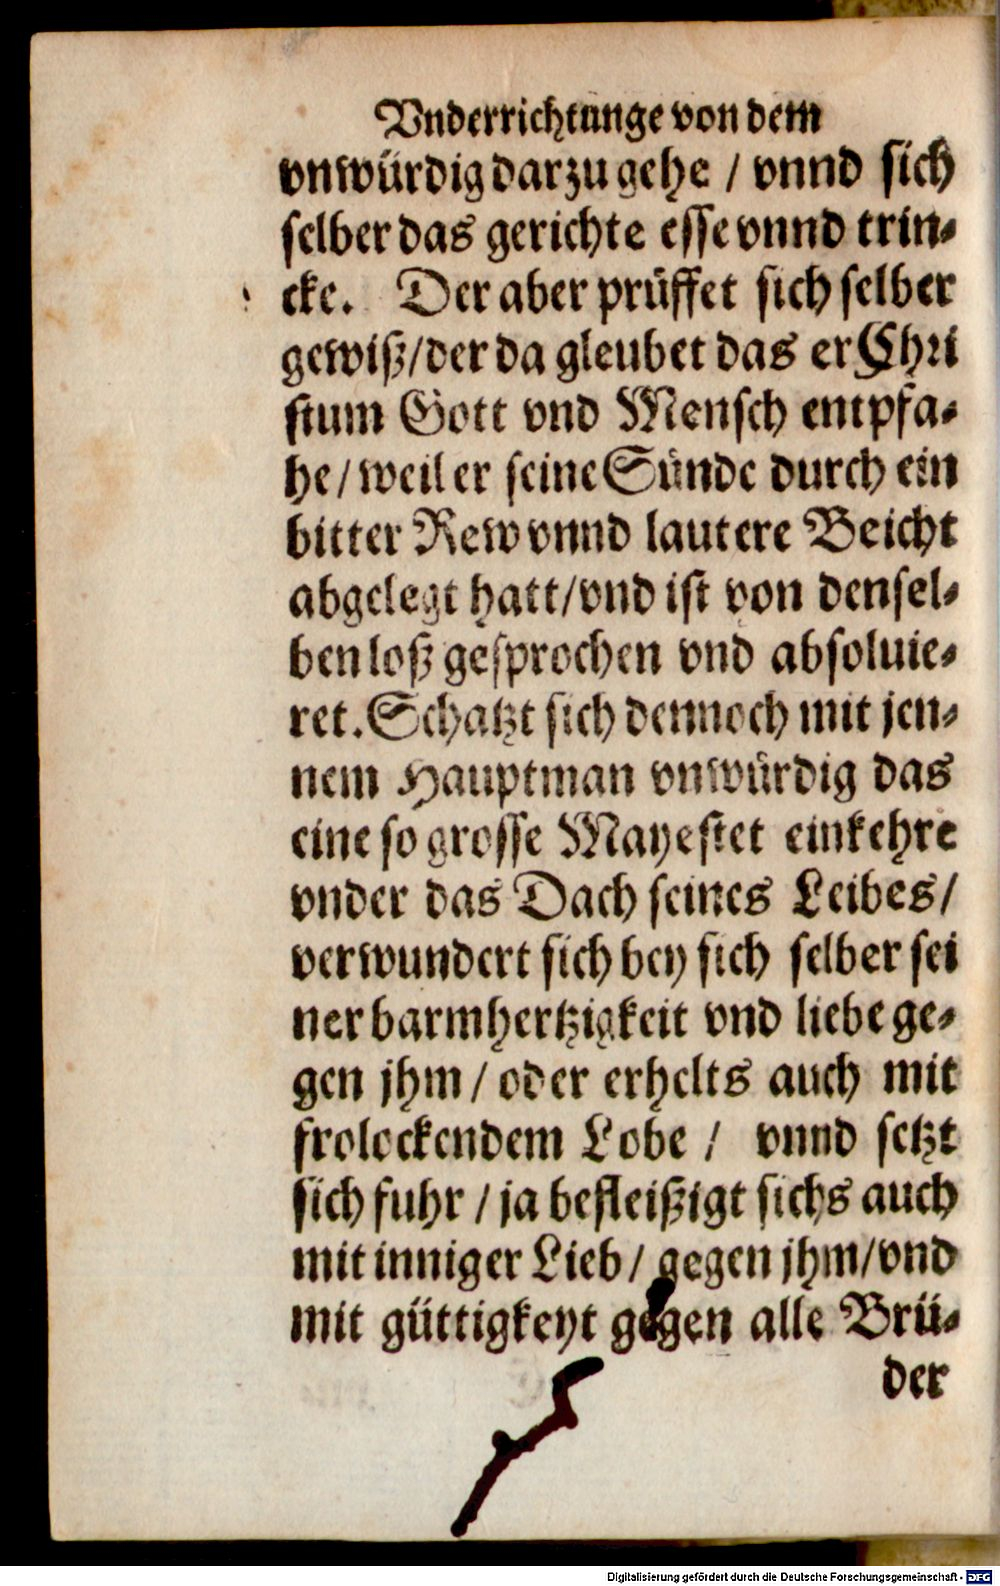 Vnderrichtunge von dem
vnwürdig darzu gehe / vnnd sich
selber das gerichte esse vnnd trin⸗
cke. Der aber prüffet sich selber
gewiß/der da gleubet das er Chri
stum Gott vnd Mensch entpfa⸗
he/weil er seine Sünde durch ein
bitter Rew vnnd lautere Beicht
abgelegt hatt/vnd ist von densel⸗
ben loß gesprochen vnd absoluie⸗
ret. Schatzt sich dennoch mit jen⸗
nem Hauptman vnwürdig das
eine so grosse Mayestet einkehre
vnder das Dach seines Leibes/
verwundert sich bey sich selber sei
ner barmhertzigkeit vnd liebe ge⸗
gen jhm / oder erhelts auch mit
frolockendem Lobe / vnnd setzt
sich fuhr / ja befleißigt sichs auch
mit inniger Lieb/ gegen jhm/vnd
mit güttigkeyt gegen alle Brü⸗
der
Digitalisierung gefördert durch die Deutsche Forschungsgemeinschaft - DFG